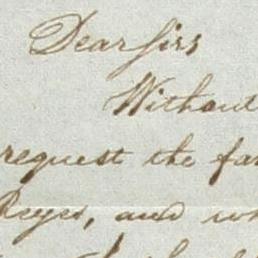 Dear Sirs
Without
request the fa
Reyes, and wh